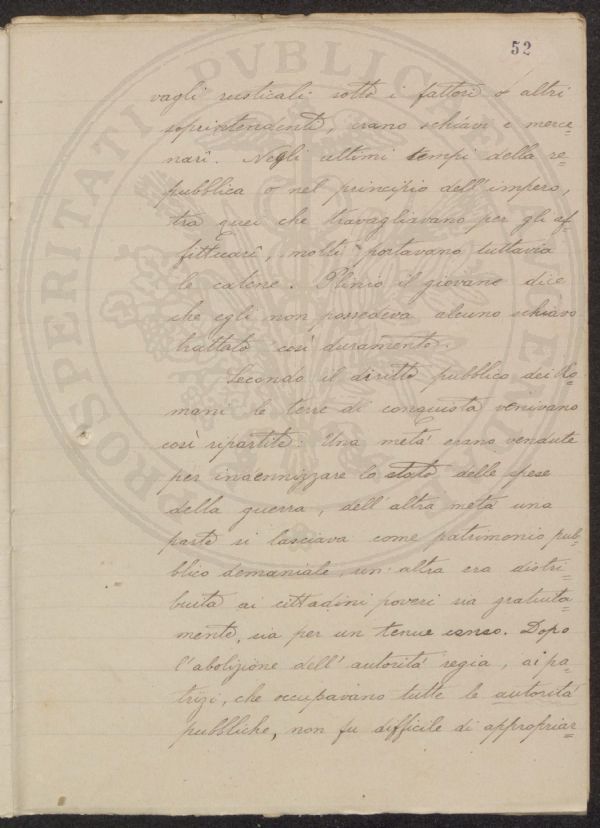 52
vagli rusticali sotto i fattori o altri
soprintendenti, erano schiavi e merce=
narî. Negli ultimi tempi della re=
pubblica o nel principio dell'impero,
tra quei che travagliavano per gli af=
fittuarî, molti portavano tuttavia
le catene. Plinio il giovane dice
che egli non possedeva alcuno schiavo
trattato così duramente.
Secondo il diritto pubblico dei Ro=
mani le terre di conquista venivano
così ripartite: Una metà erano vendute
per indennizzare lo stato delle spese
della guerra, dell'altra metà una
parte si lasciava come patrimonio pub=
blico demaniale, un'altra era distri=
buita ai cittadini poveri sia gratuita=
mente, sia per un tenue censo. Dopo
l'abolizione dell'autorità regia, ai pa=
trizi, che occupavano tutte le autorità
pubbliche, non fu difficile di appropriar=
PROSPERITATI PUBLICAE AUGENDAE